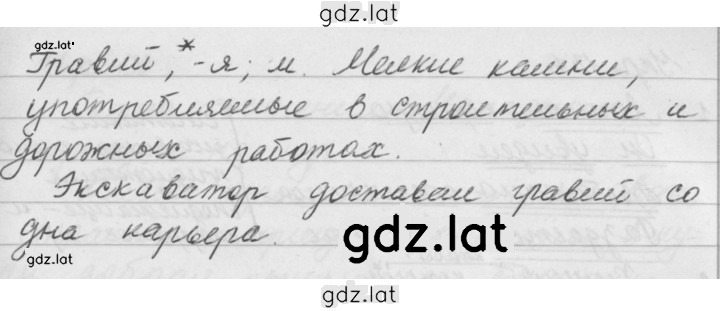 gdz.lat
gdz.lat
Гравий,* -я; м. Мелкие камни,
употребляемые в строительных и
дорожных работах.
Экскаватор доставал гравий со
дна карьера.
gdz.lat
gdz.lat
gdz.lat